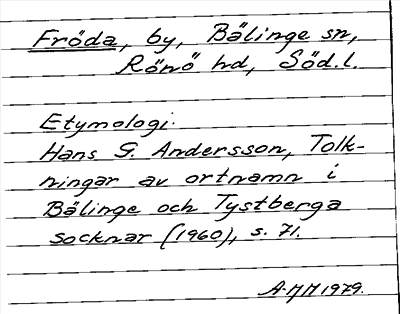 Fröda, by, Bälinge sn,
Rönö hd, Söd.l.
Etymologi.
Hans G. Andersson, Tolk-
ningar av ortnamn i
Bälinge och Tystberga
socknar (1960), s. 71.
A-MM 1979.